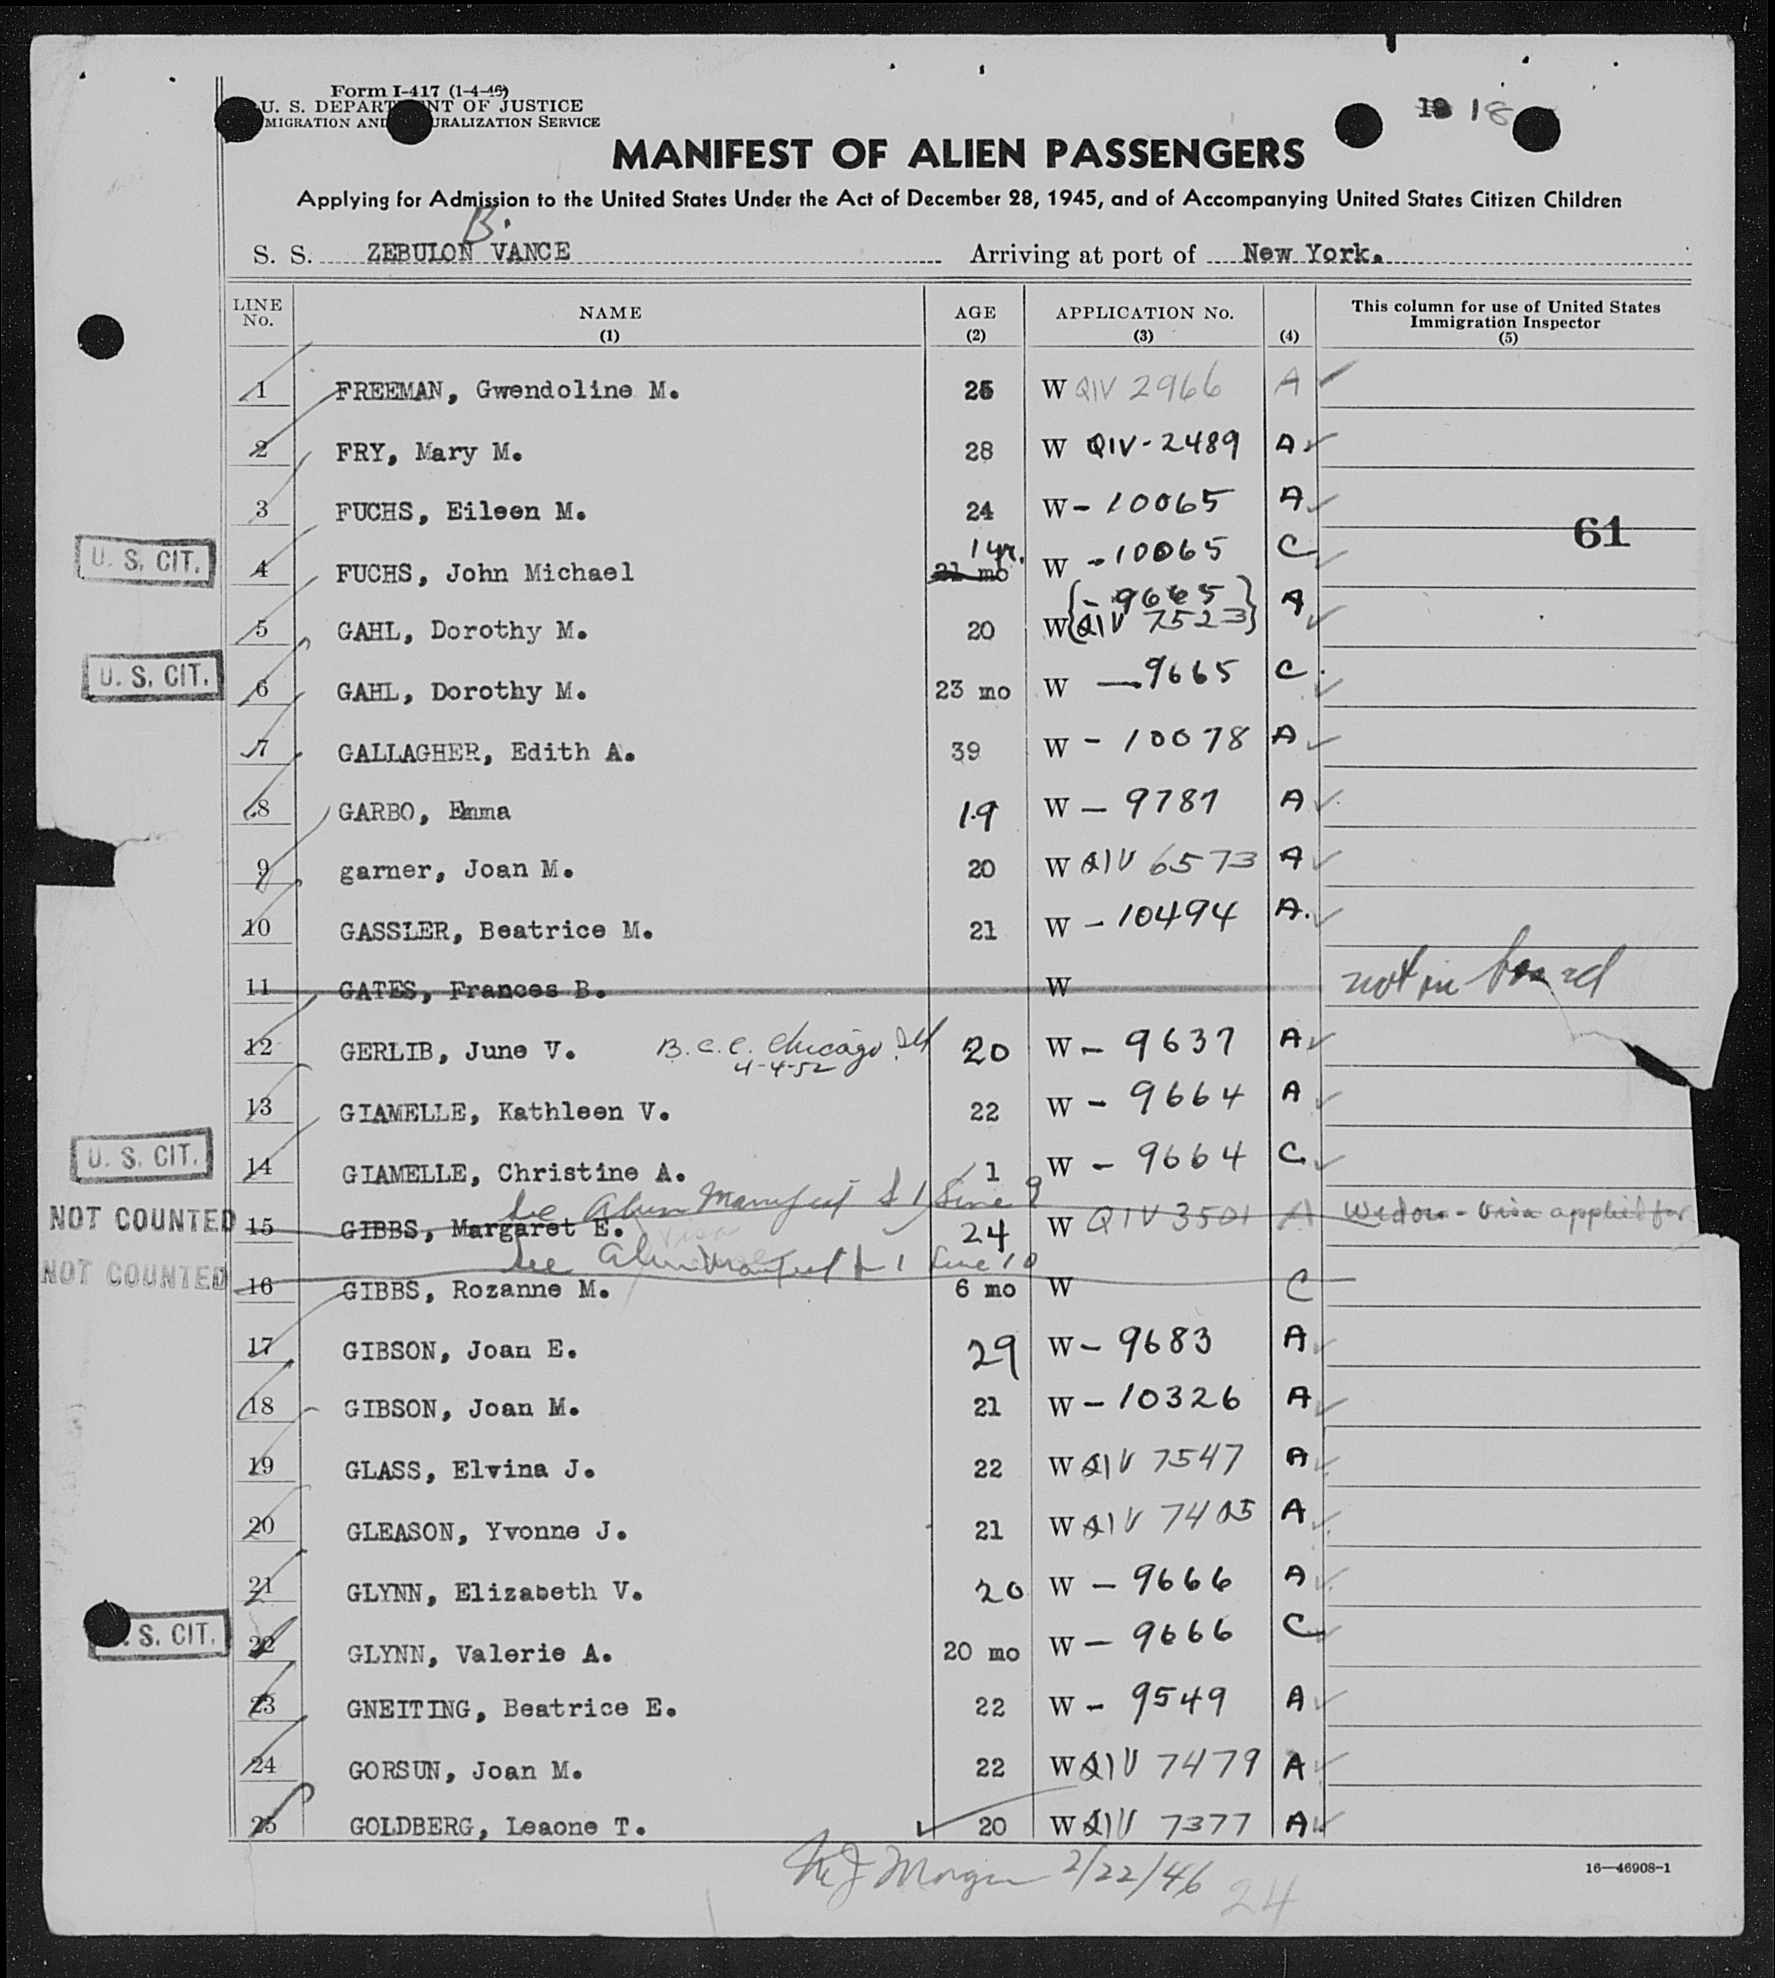 Form I-417 (1-4-46)
U. S. DEPARTMENT OF JUSTICE
IMMIGRATION AND NATURALIZATION SERVICE
18 18
MANIFEST OF ALIEN PASSENGERS
Applying for Admission to the United States Under the Act of December 28, 1945, and of Accompanying United States Citizen Children
S. S. ZEBULON B. VANCE Arriving at port of New York.
LINE No. NAME (1) AGE (2) APPLICATION No. (3) (4) This column for use of United States Immigration Inspector (5)
1 FREEMAN, Gwendoline M. 25 W QIV 2966 A
2 FRY, Mary M. 28 W QIV-2489 A
3 FUCHS, Eileen M. 24 W - 10065 A
61
U. S. CIT. 4 FUCHS, John Michael 21 mo 1 yr. W - 10065 C
5 GAHL, Dorothy M. 20 W { - 9665 QIV 7523 } A
U. S. CIT. 6 GAHL, Dorothy M. 23 mo W — 9665 C
7 GALLAGHER, Edith A. 39 W - 10078 A
8 GARBO, Emma 19 W - 9787 A
9 garner, Joan M. 20 W QIV 6573 A
10 GASSLER, Beatrice M. 21 W - 10494 A.
11 GATES, Frances B. W not on board
12 GERLIB, June V. B.C.C. Chicago Ill 4-4-52 20 W - 9637 A
13 GIAMELLE, Kathleen V. 22 W - 9664 A
U. S. CIT. 14 GIAMELLE, Christine A. 1 W - 9664 C
See Alien Manifest S 1 Line 9
NOT COUNTED 15 GIBBS, Margaret E. 24 W QIV 3501 A Widow - Visa applied for
See Alien Manifest 1 Line 10
NOT COUNTED 16 GIBBS, Rozanne M. 6 mo W C
17 GIBSON, Joan E. 29 W - 9683 A
18 GIBSON, Joan M. 21 W - 10326 A
19 GLASS, Elvina J. 22 W QIV 7547 A
20 GLEASON, Yvonne J. 21 W QIV 7405 A
21 GLYNN, Elizabeth V. 20 W - 9666 A
S. CIT. 22 GLYNN, Valerie A. 20 mo W - 9666 C
23 GNEITING, Beatrice E. 22 W - 9549 A
24 GORSUN, Joan M. 22 W QIV 7479 A
25 GOLDBERG, Leaone T. 20 W QIV 7377 A
Morgan 2/22/46 24
16—46908-1